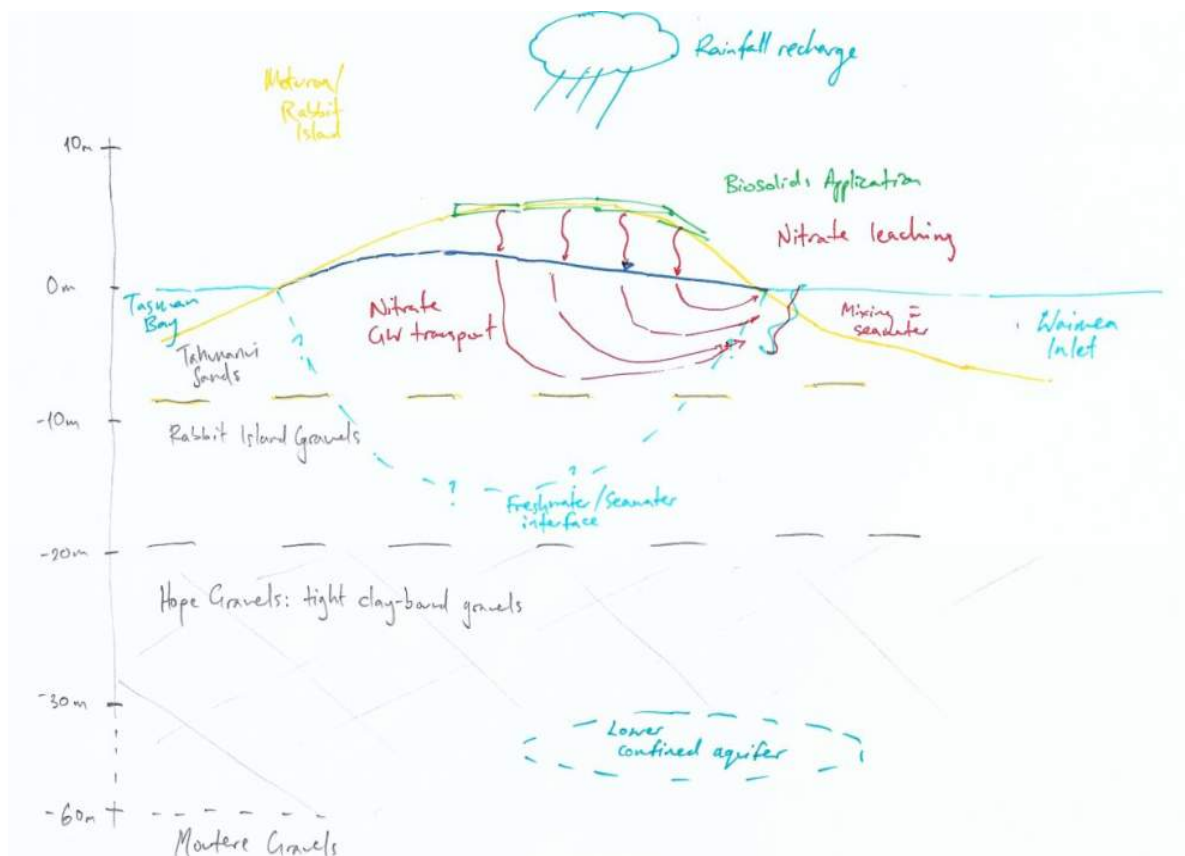 Rainfall recharge
Moturoa/
Rabbit
Island
10m
Biosolids Application
Nitrate leaching
0m
Tasman
Bay
Nitrate
GW transport
Mixing =
seawater
Waimea
Inlet
Tahunanui
Sands
?
-10m
Rabbit Island Gravels
?
?
Freshwate/Seawater
interface
-20m
Hope Gravels: tight clay-bound gravels
-30m
Lower
confined aquifer
-60m
Moutere Gravels